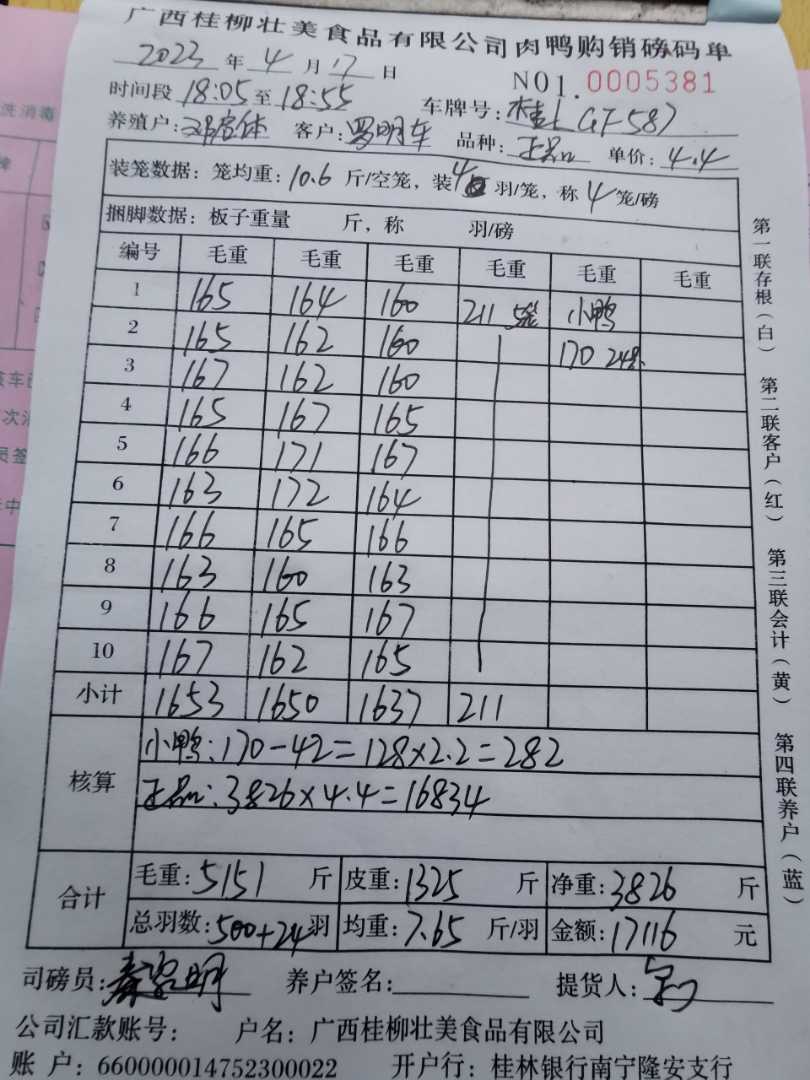 广西桂柳壮美食品有限公司肉鸭购销磅码单
2023 年 4 月 17 日 NO1.0005381
时间段 18:05 至 18:55 车牌号: GF587
养殖户: 客户: 罗明车 品种: 正品 单价: 4.4
装笼数据: 笼均重: 10.6 斤/空笼, 装 4 羽/笼, 称 4 笼/磅
捆脚数据: 板子重量 斤, 称 羽/磅
编号 毛重 毛重 毛重 毛重 毛重 毛重
1 165 164 160 211 5笼 小鸭
2 165 162 160 170 24只
3 167 162 160
4 165 167 165
5 166 171 167
6 163 172 164
7 166 165 166
8 163 160 163
9 166 165 167
10 167 162 165
小计 1653 1650 1637 211
核算
小鸭: 170-42=128×2.2=282
正品: 3826×4.4=16834
合计
毛重: 5151 斤 皮重: 1325 斤 净重: 3826 斤
总羽数: 500+24 羽 均重: 7.65 斤/羽 金额: 17116 元
司磅员: 养户签名: 提货人:
公司汇款账号: 户名: 广西桂柳壮美食品有限公司
账 户: 660000014752300022 开户行: 桂林银行南宁隆安支行
第一联存根(白) 第二联客户(红) 第三联会计(黄) 第四联养户(蓝)